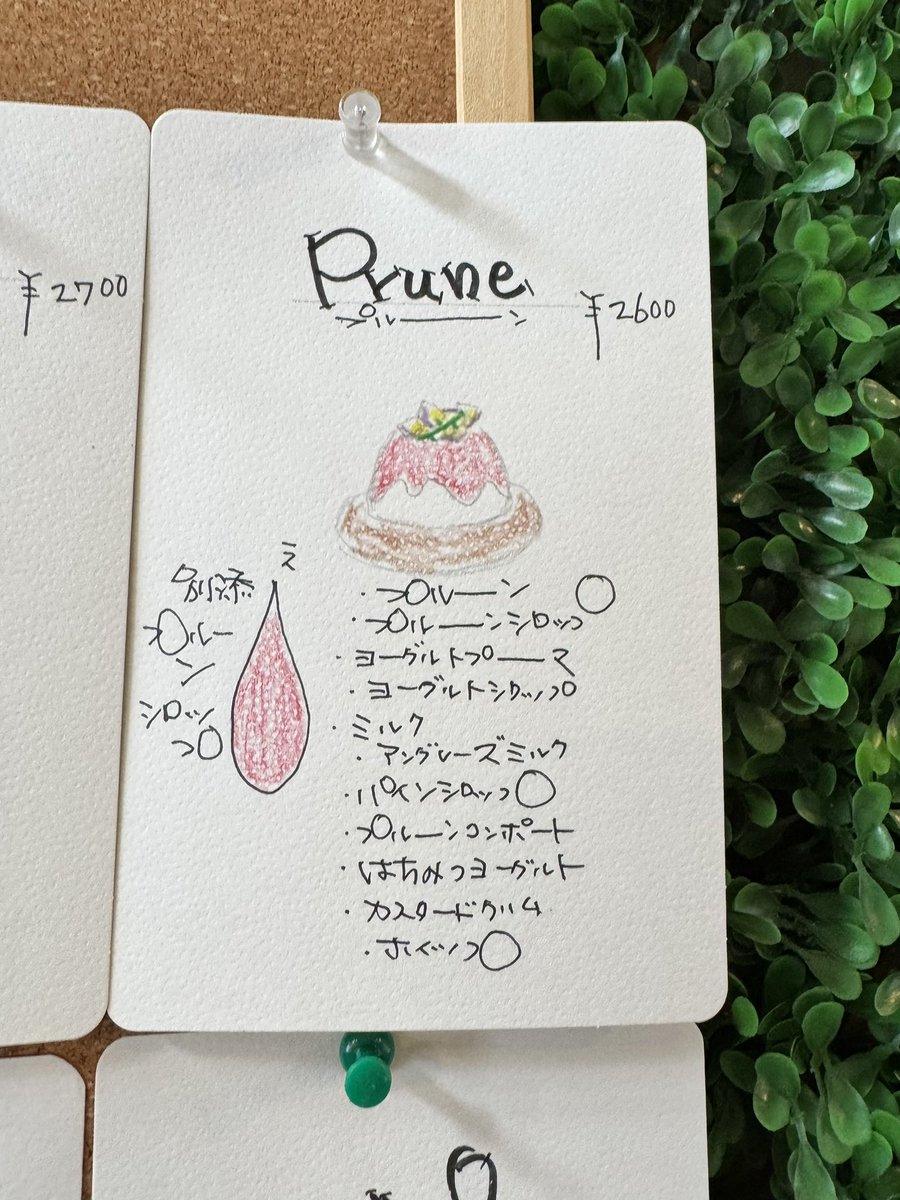 ¥2700
Prune
プルーン
¥2600
別添え
プルー
ン
シロッ
プ
・プルーン
・プルーンシロップ
・ヨーグルトプーマ
・ヨーグルトシロップ
・ミルク
・アングレーズミルク
・パインシロップ
・プルーンコンポート
・はちみつヨーグルト
・カスタードクリーム
・ホイップ